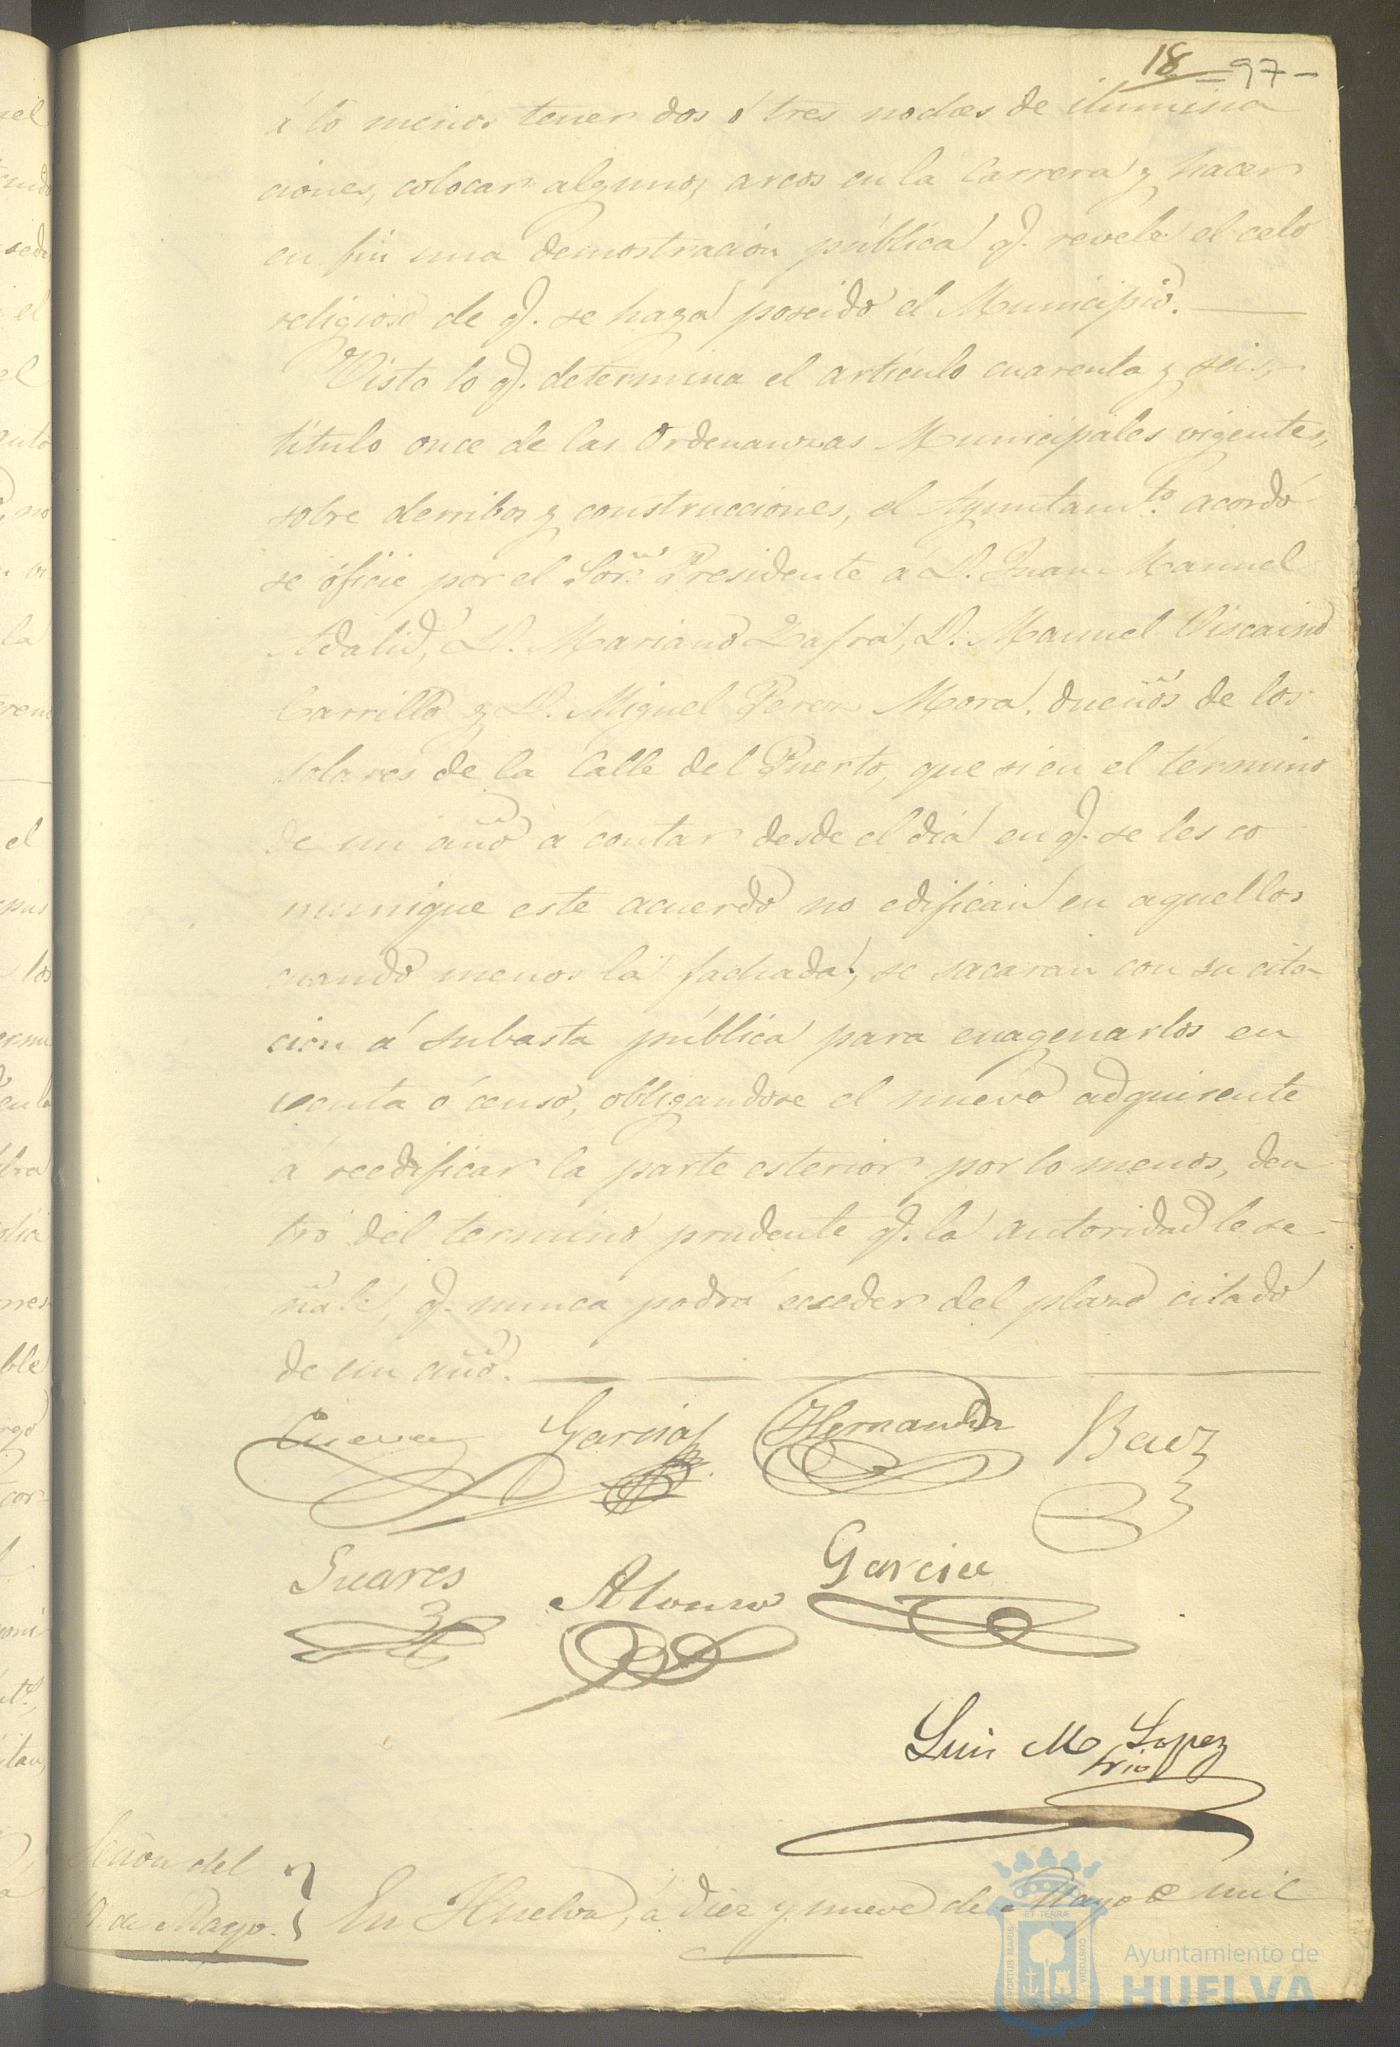 18 = 97 -
á lo menos tener dos ó tres noches de ilumina
ciones, colocar algunos arcos en la Carrera y hacer
en fin una demostración pública q. revele el celo
religioso de q. se haya poseido el Municipio.
Visto lo q. determina el artículo cuarenta y seis,
título once de las Ordenanzas Municipales vigentes,
sobre derribos y construcciones, el Ayuntamto. acordó
se óficie por el Sor. Presidente á D. Juan Manuel
Adalid, D. Mariano Zafra, D. Manuel Viscaino
Carrillo y D. Miguel Perez Mora, dueños de los
solares de la Calle del Puerto, que si en el término
de un año á contar desde el día en q. se les co
munique este acuerdo no edifican en aquellos
cuando menos la fachada, se sacarán con su cita-
ción á subasta pública para enagenarlos en
venta ó censo, obligandose el nuevo adquirente
á reedificar la parte esterior por lo menos, den
tro del termino prudente q. la autoridad le se-
ñale, q. nunca podrá esceder del plazo citado
de un año.
Cueva Garcia Hernandez Baez
Suares Alonso Garcia
Luis M Lopez
Srio
Sesion del
19 de Mayo.
En Huelva, á diez y nueve de Mayo de mil
PORTUS MARIS ET TERRÆ CUSTODIA
Ayuntamiento de
HUELVA